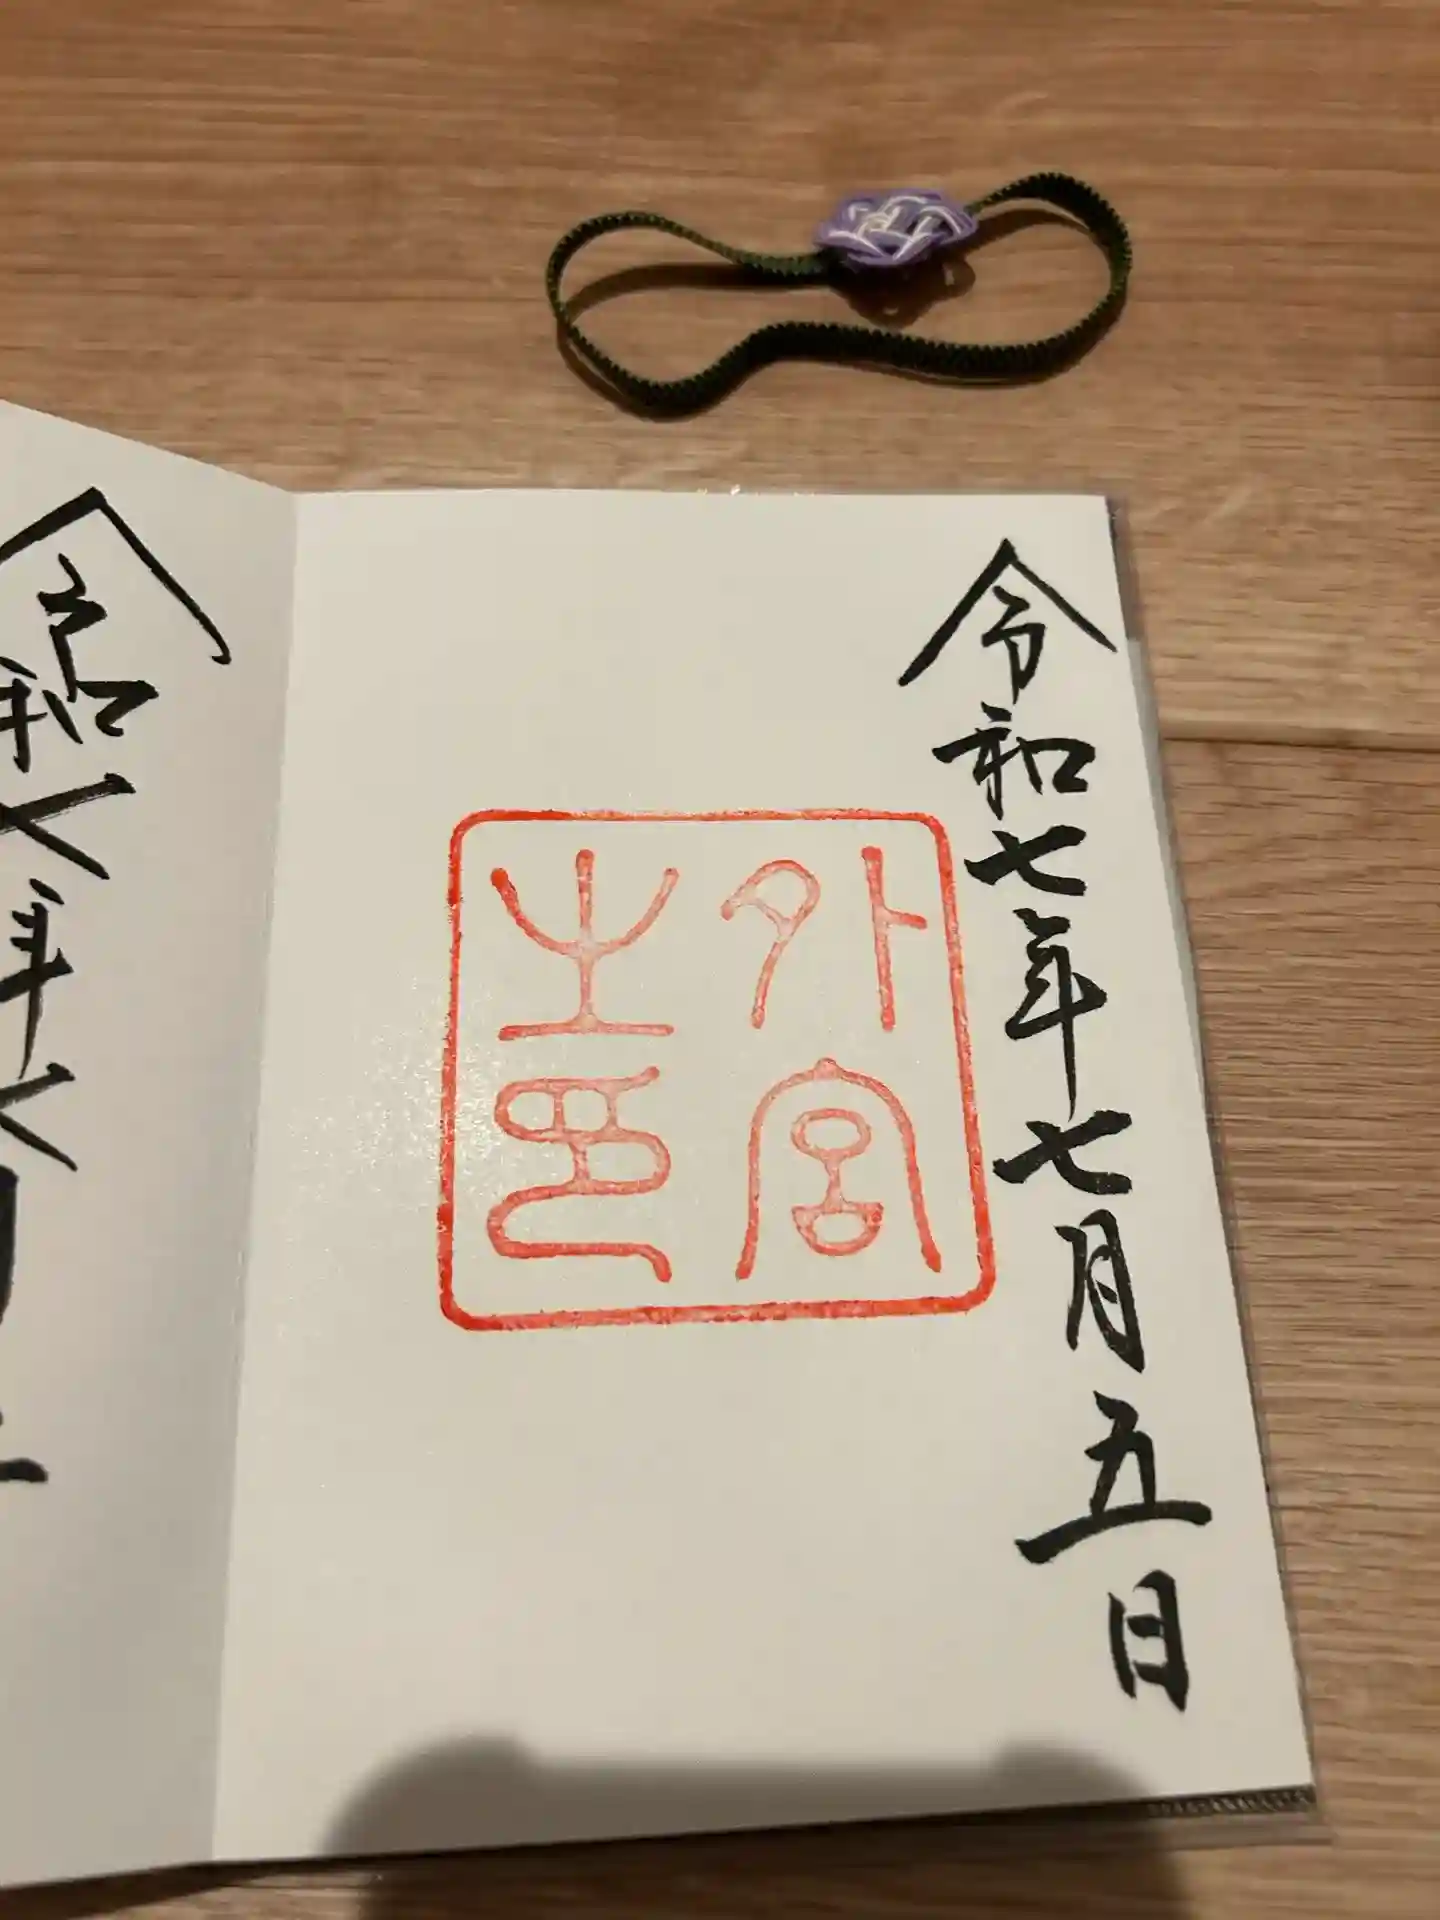 令和七年七月五日
外宮
之印
令和七年七月